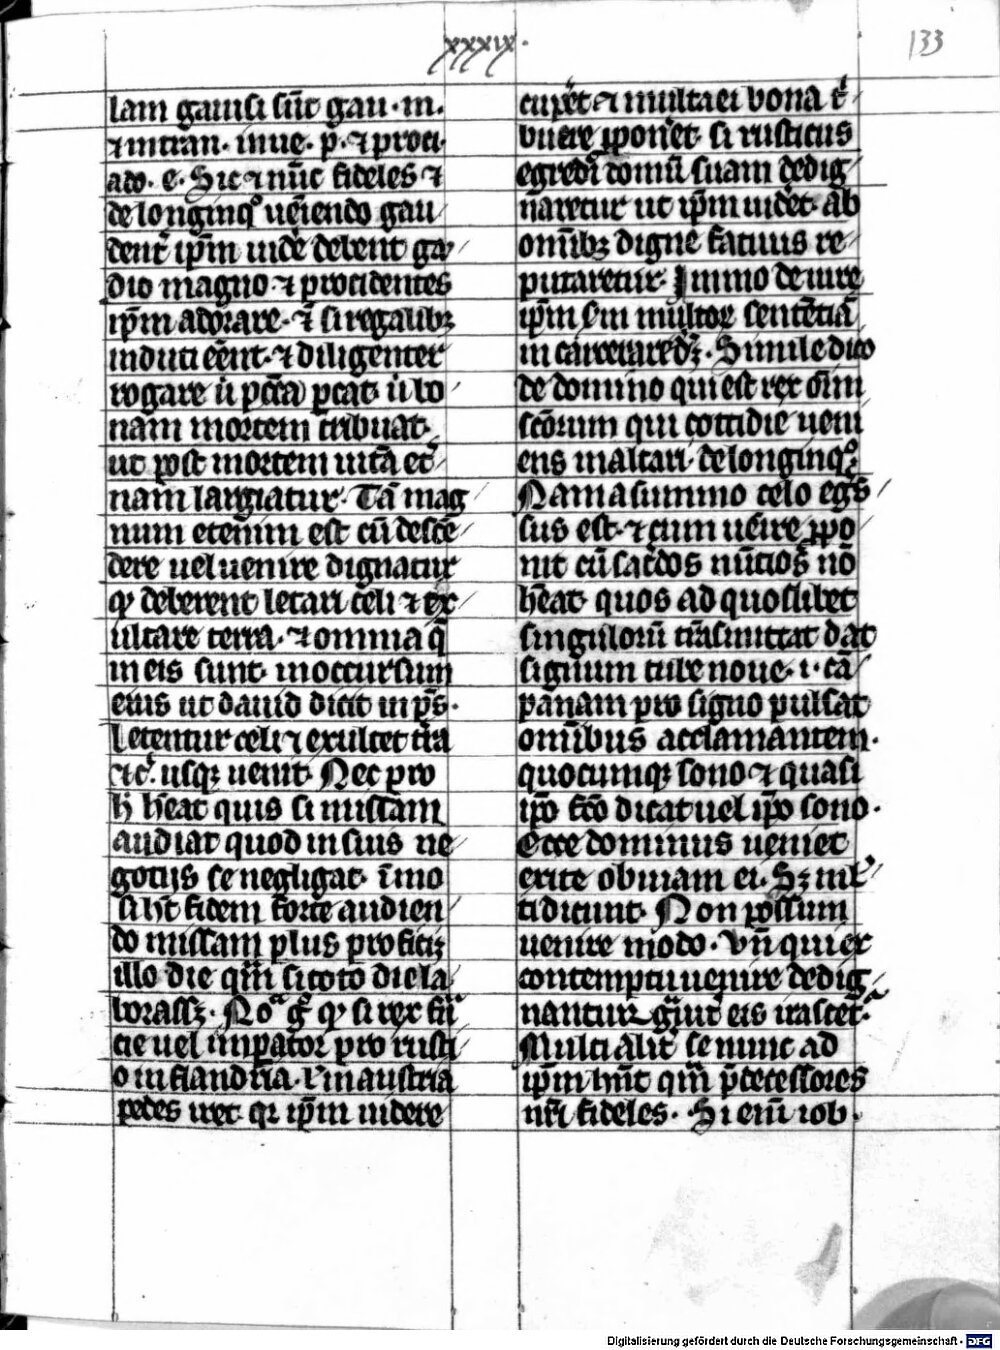 xxxix.
133
lam gauisi sūt gau. m.
⁊ intran. inue. p. ⁊ proci
ado. e. Sic ⁊ nūc fideles ⁊
de longinqͦ ueīendo gau
dent ip̄m uidē debent ga
dio magno. ⁊ procidentes
ip̄m adorare. ⁊ si regalibꝫ
induti eēnt. ⁊ diligenter
rogare ut pctā pcat. ut bo
nam mortem tribuat.
ut post mortem uitā et̄
nam largiatur. Tā mag
num etenim est cū descē
dere uel uenire dignatur
ꝙ deberent letari celi ⁊ ex
ultare terra. ⁊ omnia q̄
in eis sunt. in occursum
eius ut dauid dicit in ps̄.
Letentur celi ⁊ exultet tr̄a
⁊ cͣ. usqꝫ uenit. Nec pro
h̄ hēat quis si missam
audiat quod in suis ne
gotijs se negligat. īmo
si ht̄ fidem forte audien
do missam plus proficiꝫ
illo die qm̄ si toto die la
borassꝫ. Noͣ gͦ ꝙ si rex frā
cie uel imꝑator pro rusti
o in flandria. ul' in austria
pedes iret qr ip̄m uidere
cuꝑet ⁊ multa ei bona tͥ
buere ꝓponet. si rusticus
egredi domū suam dedig
naretur ut ip̄m uidēt. ab
omībꝫ digne fatuus re
putaretur. Immo de iure
ip̄m sm̄ multoꝝ sentētiā
incarcerare dꝫ. Simile dico
de domino qui est rex om̄i
scōrum qui cottidie ueni
ens in altari. de longinqͦ.
Nam a summo celo egs̄
sus est. ⁊ cum uēire ꝓpo
nit cū sac̄dos nūcios nō
hēat quos ad quoslibet
singulorū trāsmittat dat
signum tube noue. i. cā
panam pro signo pulsat
omībus acclamantem.
quocumqꝫ sono ⁊ quasi
ip̄o fcō dicat uel ip̄o sono.
Ecce dominus ueniet
exite obuiam ei. Sꝫ ml'
ti dicunt. Non possum
uenire modo. Vn̄ qui ex
contemptu uenire dedig
nantur gͣuit̄ eis irascet̄.
Multi alit̄ se nunc ad
ip̄m hn̄t qm̄ p̄decessores
nr̄i fideles. Si eni iob.
Digitalisierung gefördert durch die Deutsche Forschungsgemeinschaft - DFG